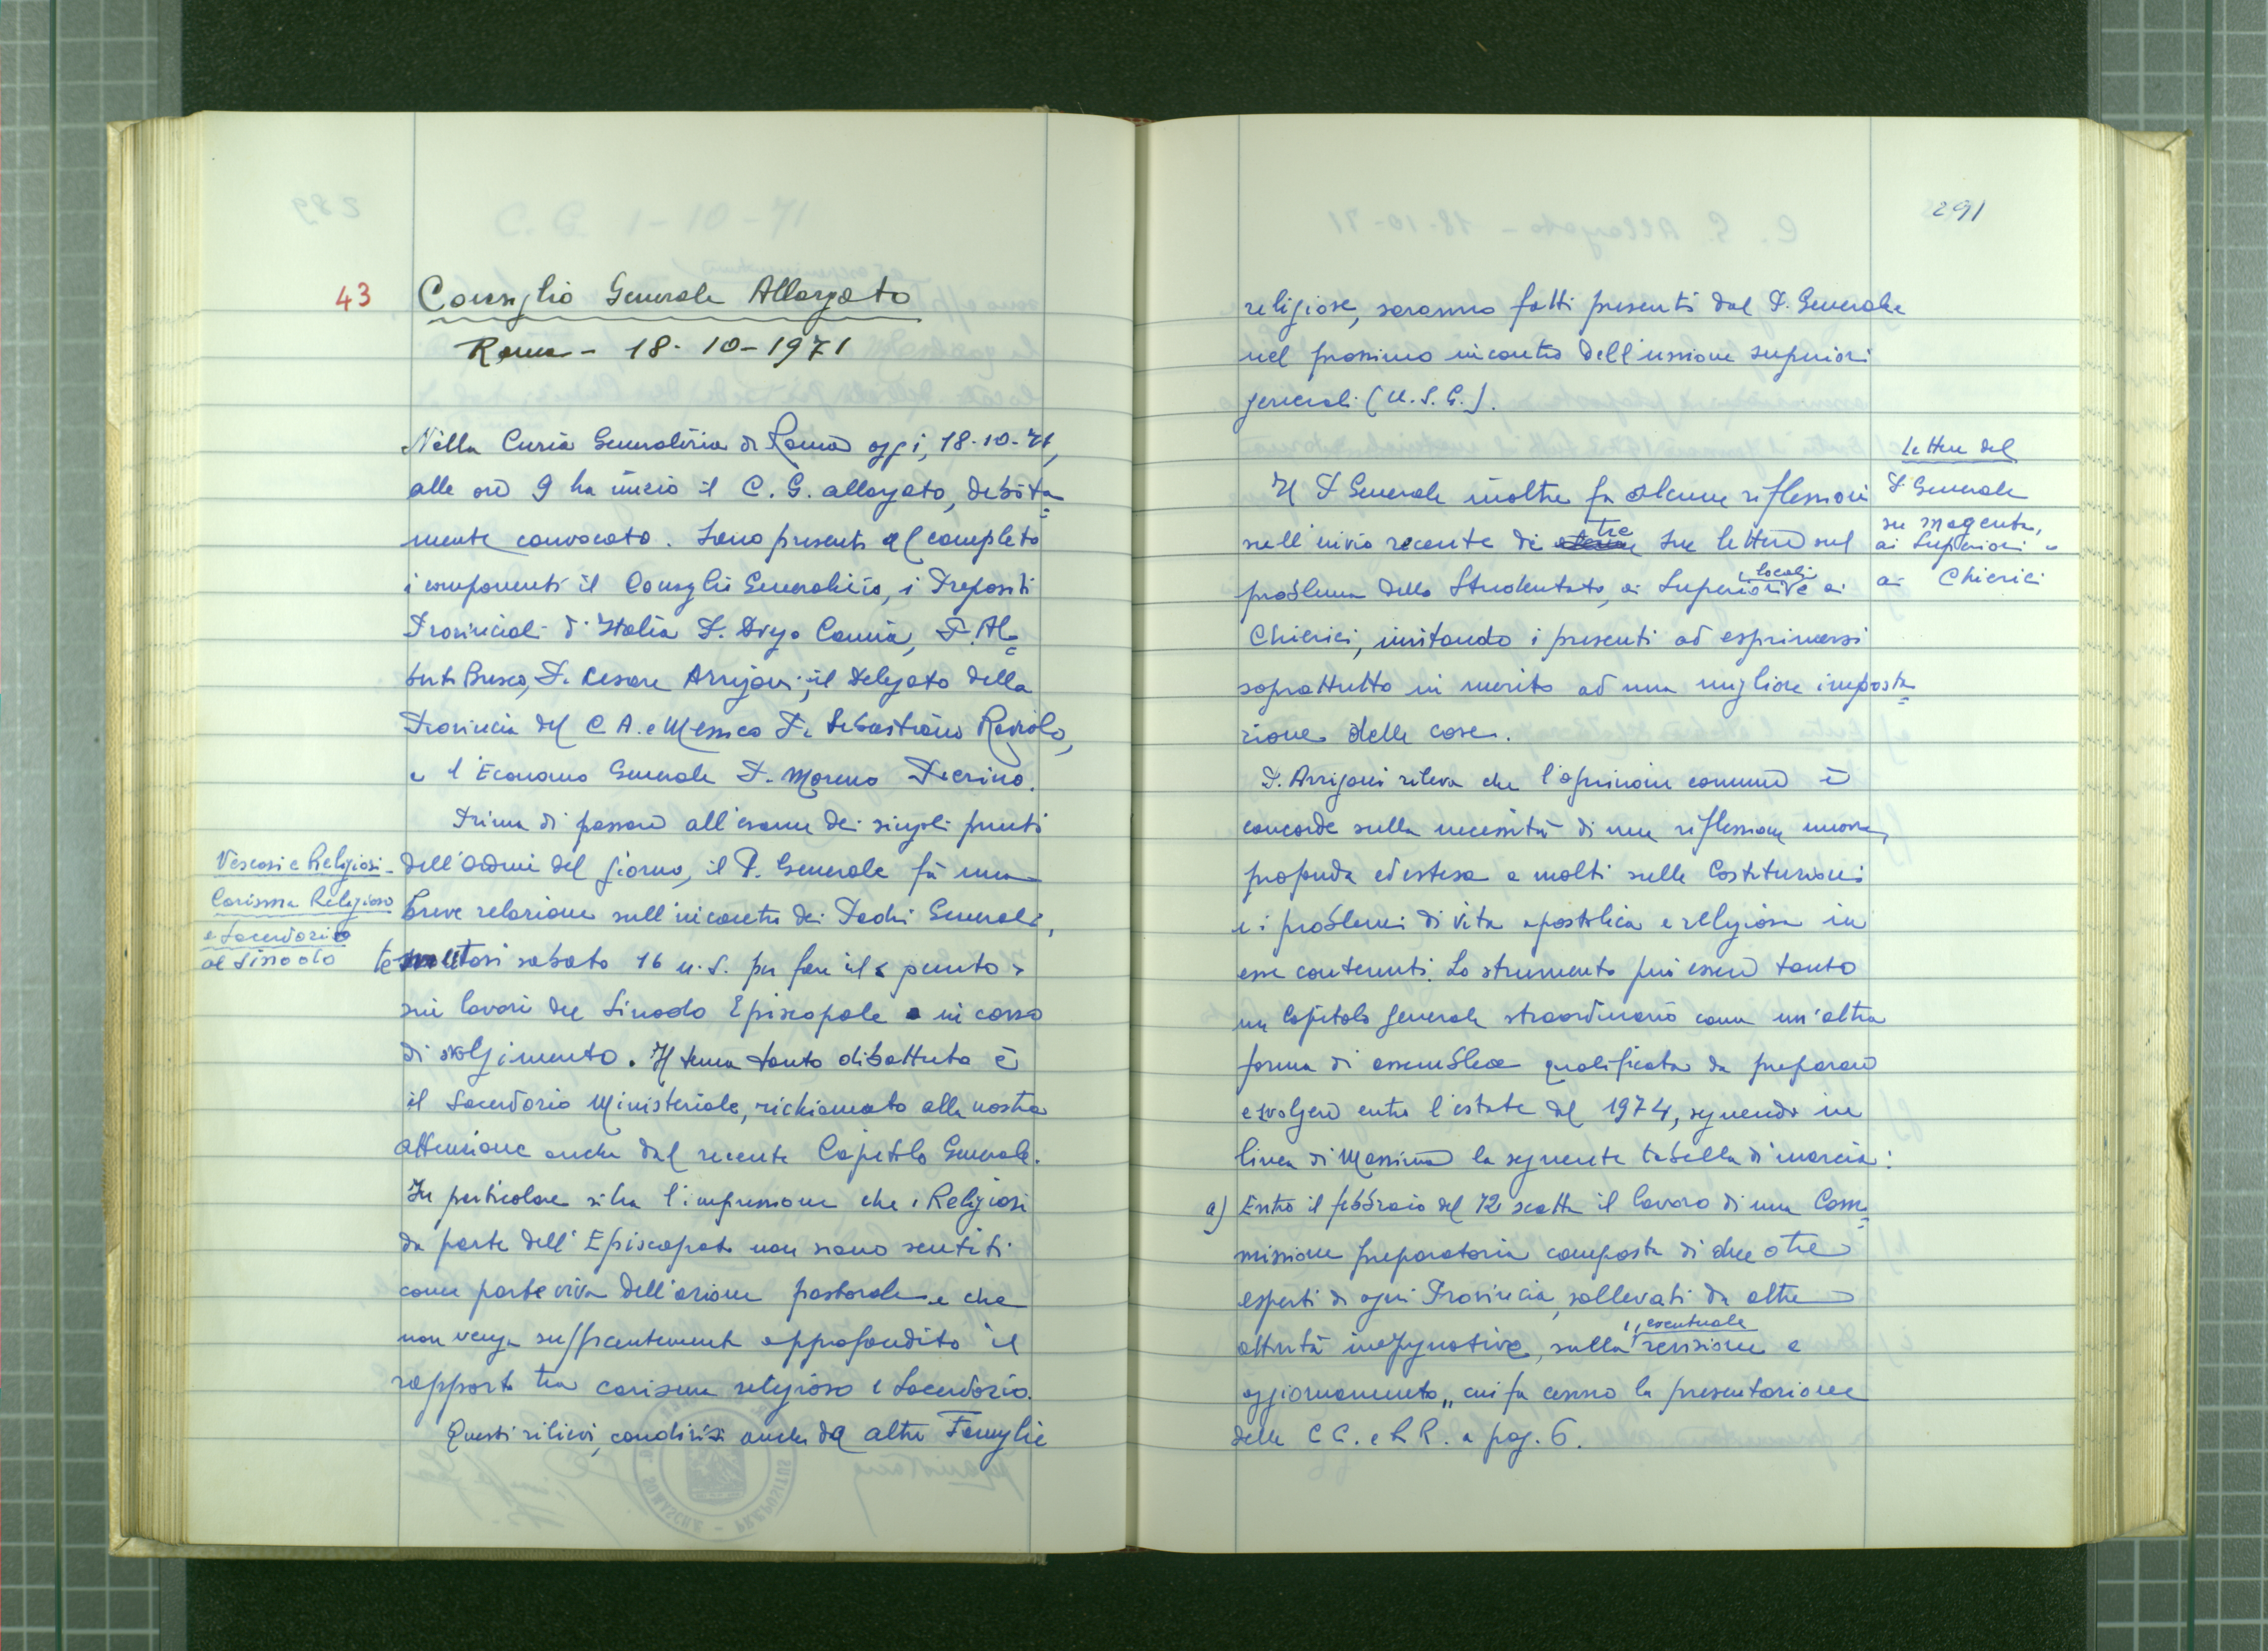 43
Consiglio Generale Allargato
Roma - 18-10-1971
Nella Curia Generalizia di Roma oggi, 18-10-71,
alle ore 9 ha inizio il C. G. allargato, debita=
mente convocato. Sono presenti al completo
i componenti il Consiglio Generalizio, i Prepositi
Provinciali d'Italia P. Drigo Cannia, P. Al=
berto Busco, P. Cesare Arrigoni; il Delegato della
Provincia del C A. e Messico P. Sebastiano Raviolo,
e l'Economo Generale P. Moreno Pierino.
Prima di passare all'esame dei singoli punti
Vescovi e Religiosi-
Carisma Religioso
e Sacerdozio
al Sinodo
dell'Ordine del giorno, il P. Generale fà una
breve relazione sull'incontro dei Padri Generali,
tenutosi sabato 16 u.s. per fare il « punto »
sui lavori del Sinodo Episcopale in corso
di svolgimento. Il tema tanto dibattuto è
il Sacerdozio Ministeriale, richiamato alla nostra
attenzione anche dal recente Capitolo Generale.
In particolare si ha l'impressione che i Religiosi
da parte dell'Episcopato non siano sentiti
come parte viva dell'azione pastorale e che
non venga sufficientemente approfondito il
rapporto tra carisma religioso e Sacerdozio.
Questi rilievi, condivisi anche da altre Famiglie
291
religiose, saranno fatti presenti dal P. Generale
nel prossimo incontro dell'unione superiori
generali (U.S.G.).
Lettere del
P. Generale
su Magenta,
ai Superiori e
ai Chierici
Il P Generale inoltre fa alcune riflessioni
sull'invio recente di tre sue lettere sul
problema dello Studentato, ai Superiori locali e ai
Chierici, invitando i presenti ad esprimersi
soprattutto in merito ad una migliore imposta=
zione delle cose.
P. Arrigoni rileva che l'opinione comune è
concorde sulla necessità di una riflessione nuova,
profonda ed estesa a molti sulle Costituzioni
e i problemi di vita apostolica e religiosa in
esse contenuti. Lo strumento può essere tanto
un Capitolo generale straordinario come un'altra
forma di assemblea qualificata da preparare
e svolgere entro l'estate del 1974, seguendo in
linea di Massima la seguente tabella di marcia:
a) Entro il febbraio del 72 scatta il lavoro di una Com=
missione preparatoria composta di due o tre
esperti di ogni Provincia, sollevati da altre
attività impegnative, sulla "eventuale revisione e
aggiornamento" cui fa cenno la presentazione
delle CC. e RR. a pag. 6.